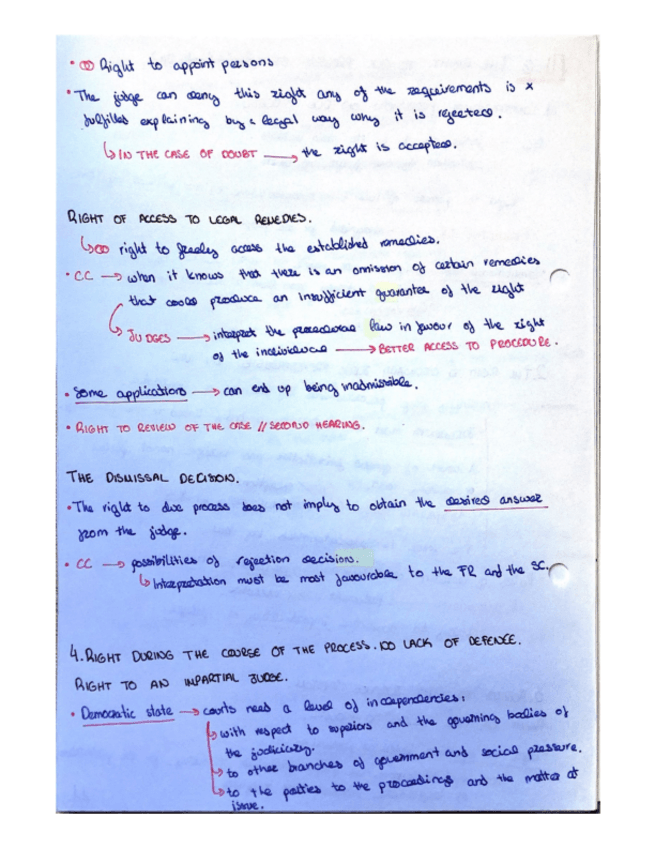 • Right to appoint persons
• The judge can deny this right any of the requirements is x
fulfilled explaining by a legal way why it is rejected.
↳ IN THE CASE OF DOUBT → the right is accepted.
RIGHT OF ACCESS TO LEGAL REMEDIES.
↳ right to freely access the established remedies.
• CC → when it knows that there is an omission of certain remedies
that could produce an insufficient guarantee of the right
↳ JUDGES → interpret the procedural law in favour of the right
of the individual → BETTER ACCESS TO PROCEDURE.
• Some applications → can end up being inadmissible.
• RIGHT TO REVIEW OF THE CASE // SECOND HEARING.
THE DISMISSAL DECISION.
• The right to due process does not imply to obtain the desired answer
from the judge.
• CC → possibilities of rejection decision.
↳ Interpretation must be most favourable to the FR and the SC.
4. RIGHT DURING THE COURSE OF THE PROCESS. NO LACK OF DEFENCE.
RIGHT TO AN IMPARTIAL JUDGE.
• Democratic state → courts need a level of independencies.
↳ with respect to superiors and the governing bodies of
the judiciary.
↳ to other branches of government and social pressure.
↳ to the parties to the proceedings and the matter at
issue.